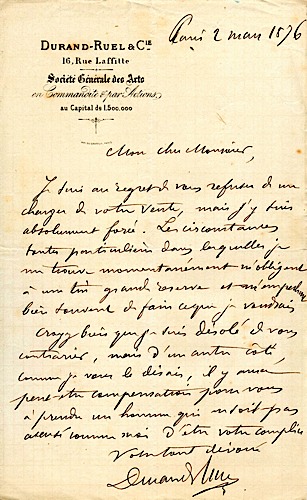 DURAND-RUEL & CIE
16, Rue Laffitte
Société Générale des Arts
en Commandite & par Actions
au Capital de 1.500.000
Paris 2 mars 1876
Mon cher Monsieur,
Je suis au regret de vous refuser de me
charger de votre vente, mais j'y suis
absolument forcé. Les circonstances
toutes particulières dans lesquelles je
me trouve momentanément m'obligent
à une très grande réserve et m'empêchent
bien souvent de faire ce que je voudrais
Croyez bien que je suis désolé de vous
contrarier, mais d'un autre côté,
comme je vous le disais, il y aura
peut-être compensation pour vous
à prendre un homme qui ne soit pas
comme moi d'être votre complice
Votre tout dévoué
Durand Ruel